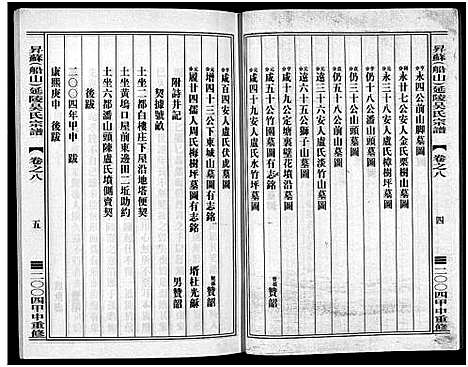 昇蘇船山延陵吳氏宗譜
卷之八
四
二〇〇四甲申重修
永四公前山脚墓圖
永廿七公安人金氏栗樹山墓圖
仍十八公潘山頭墓圖
仍五十公前山墓圖
遠三十八安人盧氏樟樹坪墓圖
遠三十六安人盧氏淡竹山墓圖
遠十五公獅子山墓圖
咸十九公定塘裏壁花墳沿墓圖
咸五十公竹園墓圖有志銘
贊韶
咸四十九安人盧氏水竹坪墓圖
咸百四安人盧氏伏虎墓圖
增四十三公下東城山墓圖有志銘
贊韶
履廿四孺人周氏梅樹坪墓圖有志銘
壻杜光龢
附詩并記
男贊韶
契據號畝
土坐二都白樓庄下屋沿地塔便契
土坐黃塢口屋前東邊田二坵助約
土坐六都潘山頭陳盧氏墳側賣契
後跋
二〇〇四年甲申跋
康熙庚申後跋
昇蘇船山延陵吳氏宗譜
卷之八
五
二〇〇四甲申重修